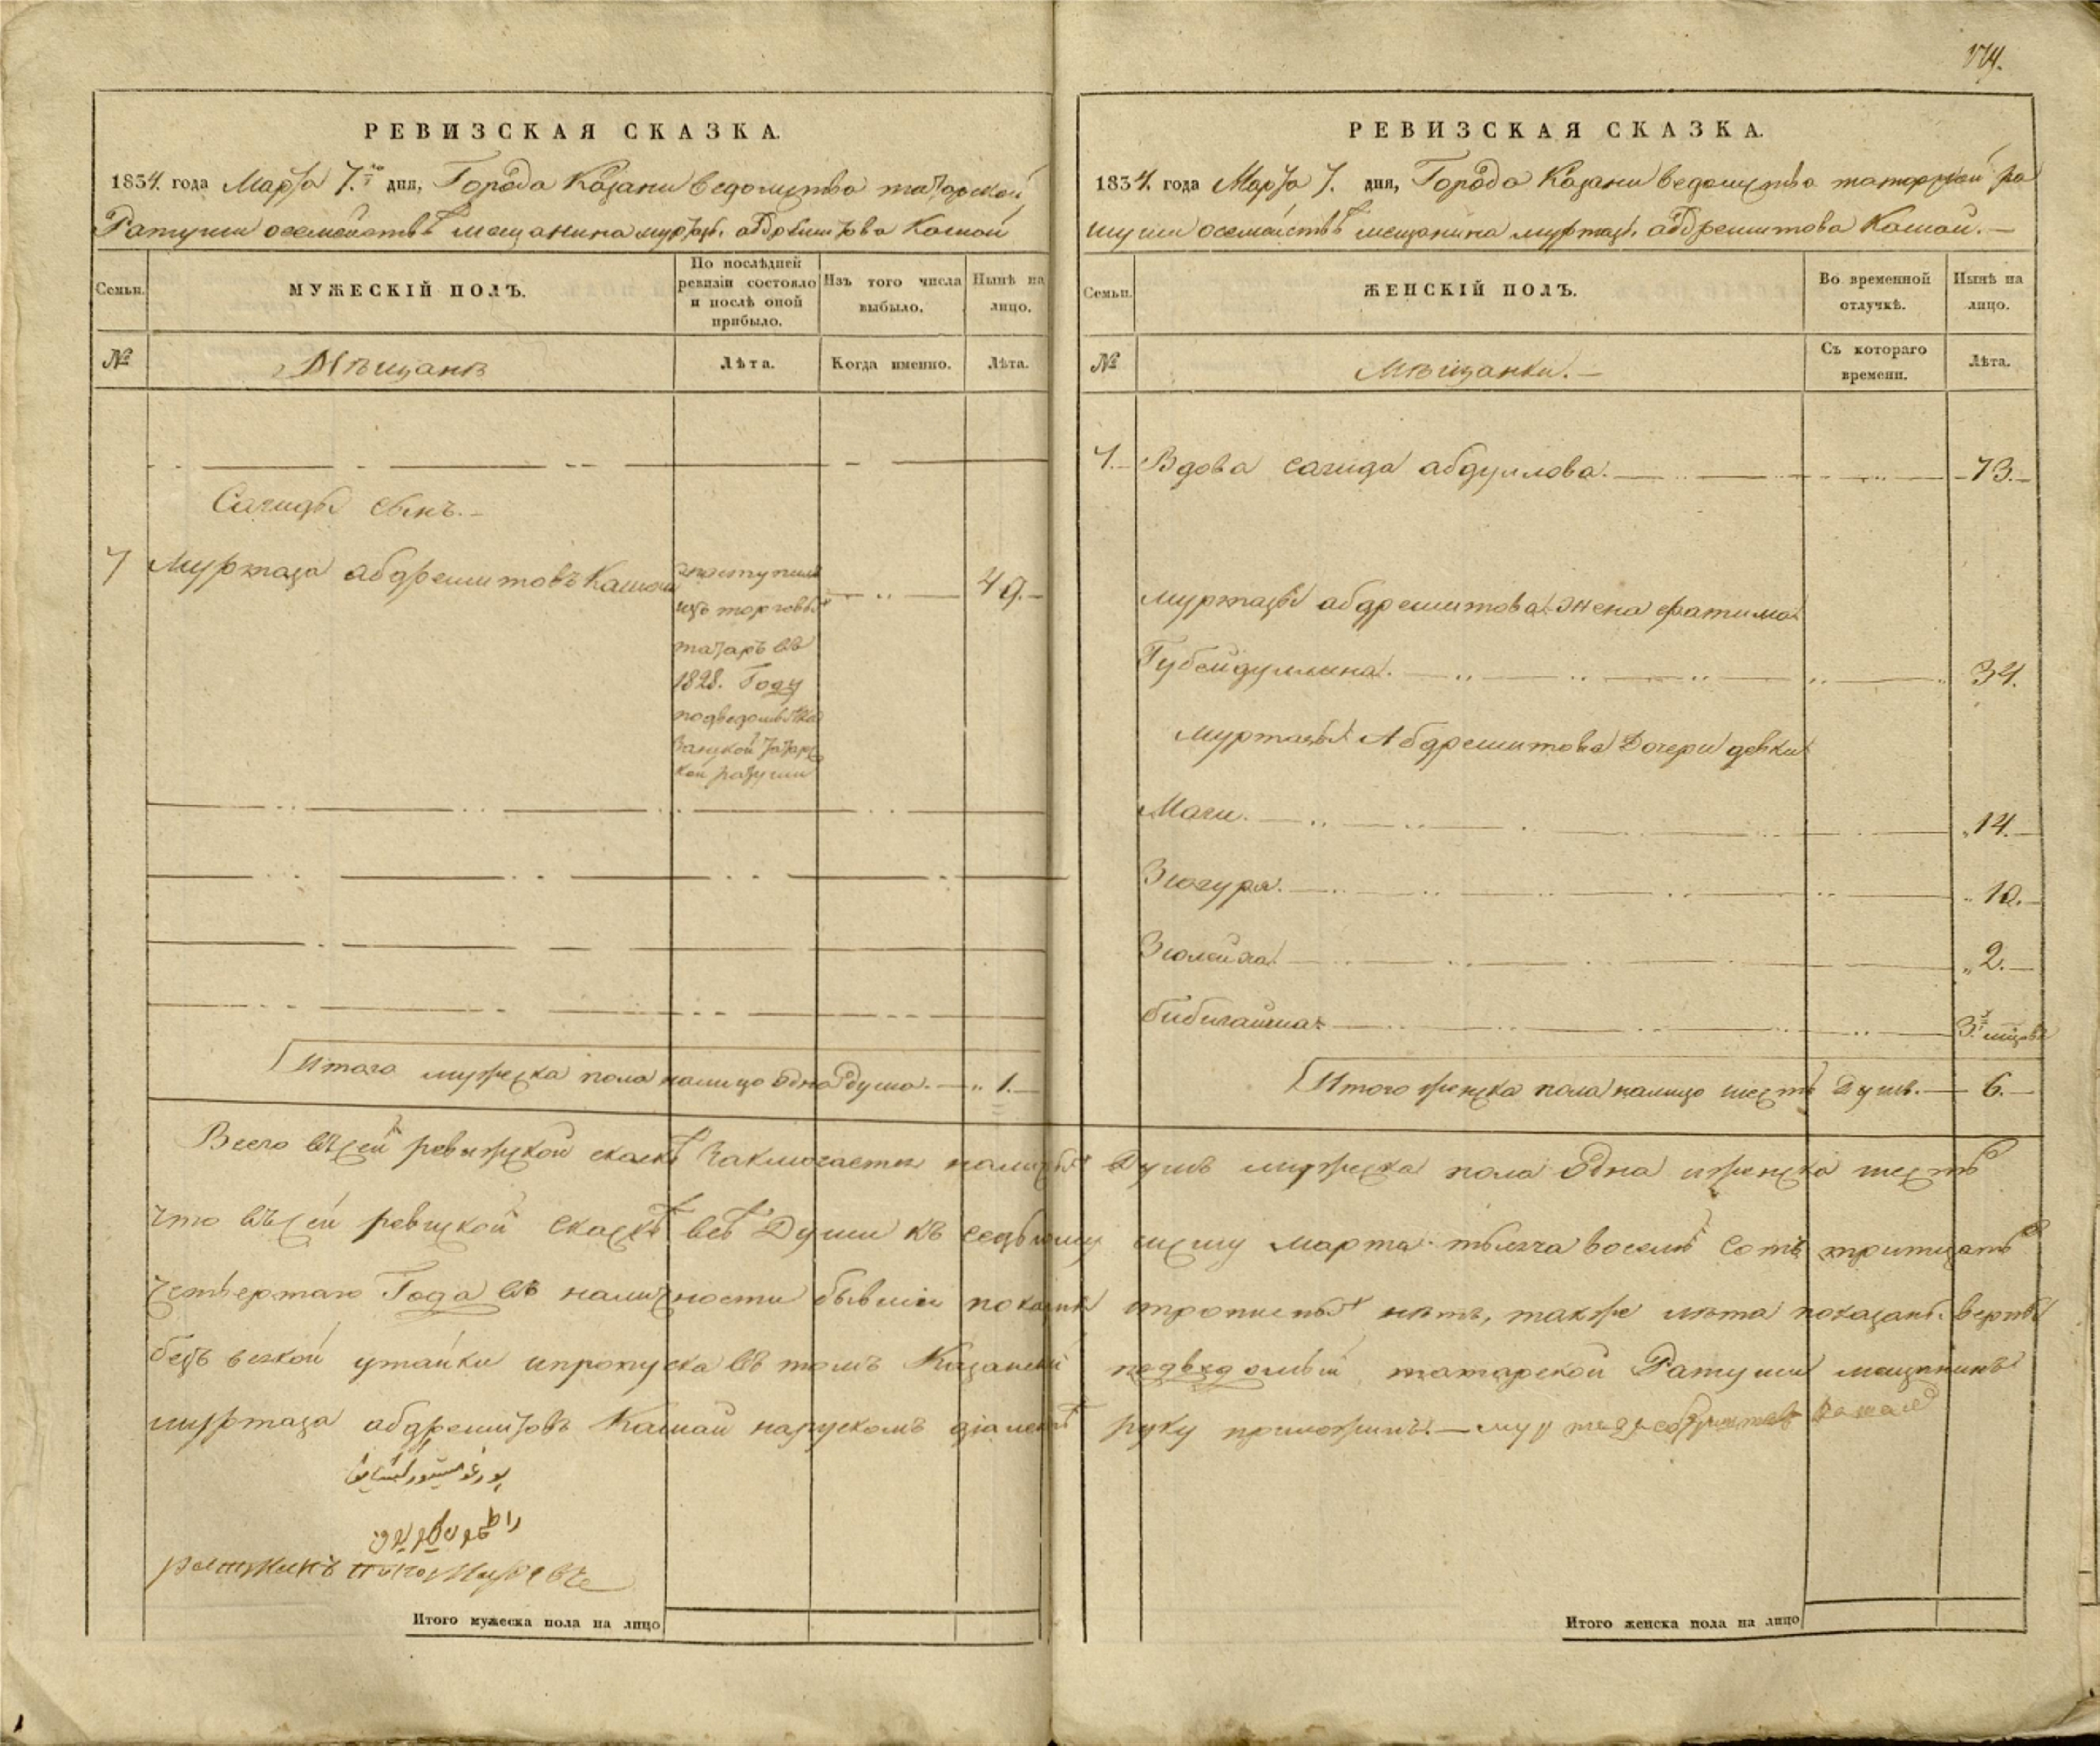 РЕВИЗСКАЯ СКАЗКА.
1834. года Марта 7.го дня, Города Казани ведомства татарской
Ратуши о семействѣ мещанина муртазы абдрешитова Кашай
Семьи.
МУЖЕСКІЙ ПОЛЪ.
По послѣдней ревизіи состояло и послѣ оной прибыло.
Изъ того числа выбыло.
Нынѣ на лицо.
№
Мѣщанѣ
Лѣта.
Когда именно.
Лѣта.
Сагиды сынъ.
7 Муртаза абдрешитовъ Кашай 49.
поступилъ
изъ торговыхъ
татаръ въ
1828. Году
Итого мужеска пола налицо Одна Душа. 1.
174.
РЕВИЗСКАЯ СКАЗКА.
1834. года Марта 7. дня, Города Казани ведомства татарской ра
туши о семействѣ мещанина муртазы абдрешитова Кашай.
Семьи.
ЖЕНСКІЙ ПОЛЪ.
Во временной отлучкѣ.
Нынѣ на лицо.
№
Мѣщанки.
Съ котораго времени.
Лѣта.
7. Вдова сагида абдуллова. 73.
муртазы абдрешитова жена фатима
Губейдуллина. 34.
муртазы Абдрешитова Дочери девки
Маги. 14.
Зюгура. 10.
Зюлейха 2.
бибигайша 3.
Итого женска пола налицо шесть Душъ. 6.
Всего въ сей ревижской скаскѣ Заключается налицо Душъ мужеска пола Одна и женска шесть
что въ сей ревиской скаскѣ всѣ Души къ седьмому числу марта тысяча восемь сотъ тритцать
четвертаго Года въ наличности бывшіи показаны и прописныхъ нѣтъ, также лѣта показаны верны
безъ всякой утайки и пропуска въ томъ Казанской татарской Ратуши мещанинъ
муртаза абдрешитовъ Кашай на рускомъ діалектѣ руку приложилъ.
Итого мужеска пола на лицо
Итого женска пола на лицо